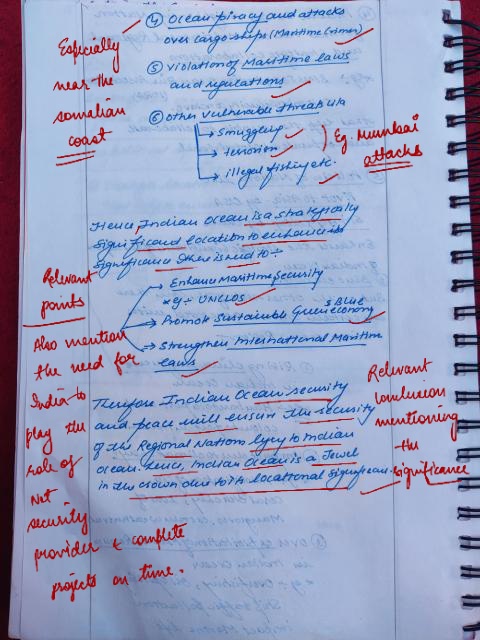 ④ Ocean piracy and attacks
over cargo ships (Maritime Crimes)
⑤ Violation of Maritime laws
and regulations
⑥ Other vulnerable threats via
→ Smuggling
→ terrorism
→ illegal fishing etc.
Especially
near the
somalian
coast
Eg. Mumbai
attacks
Hence, Indian Ocean is a strategically
significant location to enhance its
significance there is need to :-
→ Enhance Maritime Security
eg :- UNCLOS
→ Promote Sustainable Green economy
& BLUE
→ Strengthen International Maritime
laws
Relevant
points
Also mention
the need for
India to
play the
role of
Net
security
provider & complete
projects on time.
Therefore Indian Ocean security
and peace will ensure the security
of the Regional Nations lying to Indian
Ocean. Hence, Indian Ocean is a Jewel
in the crown due to its locational significance
Relevant
conclusion
mentioning
the
significance